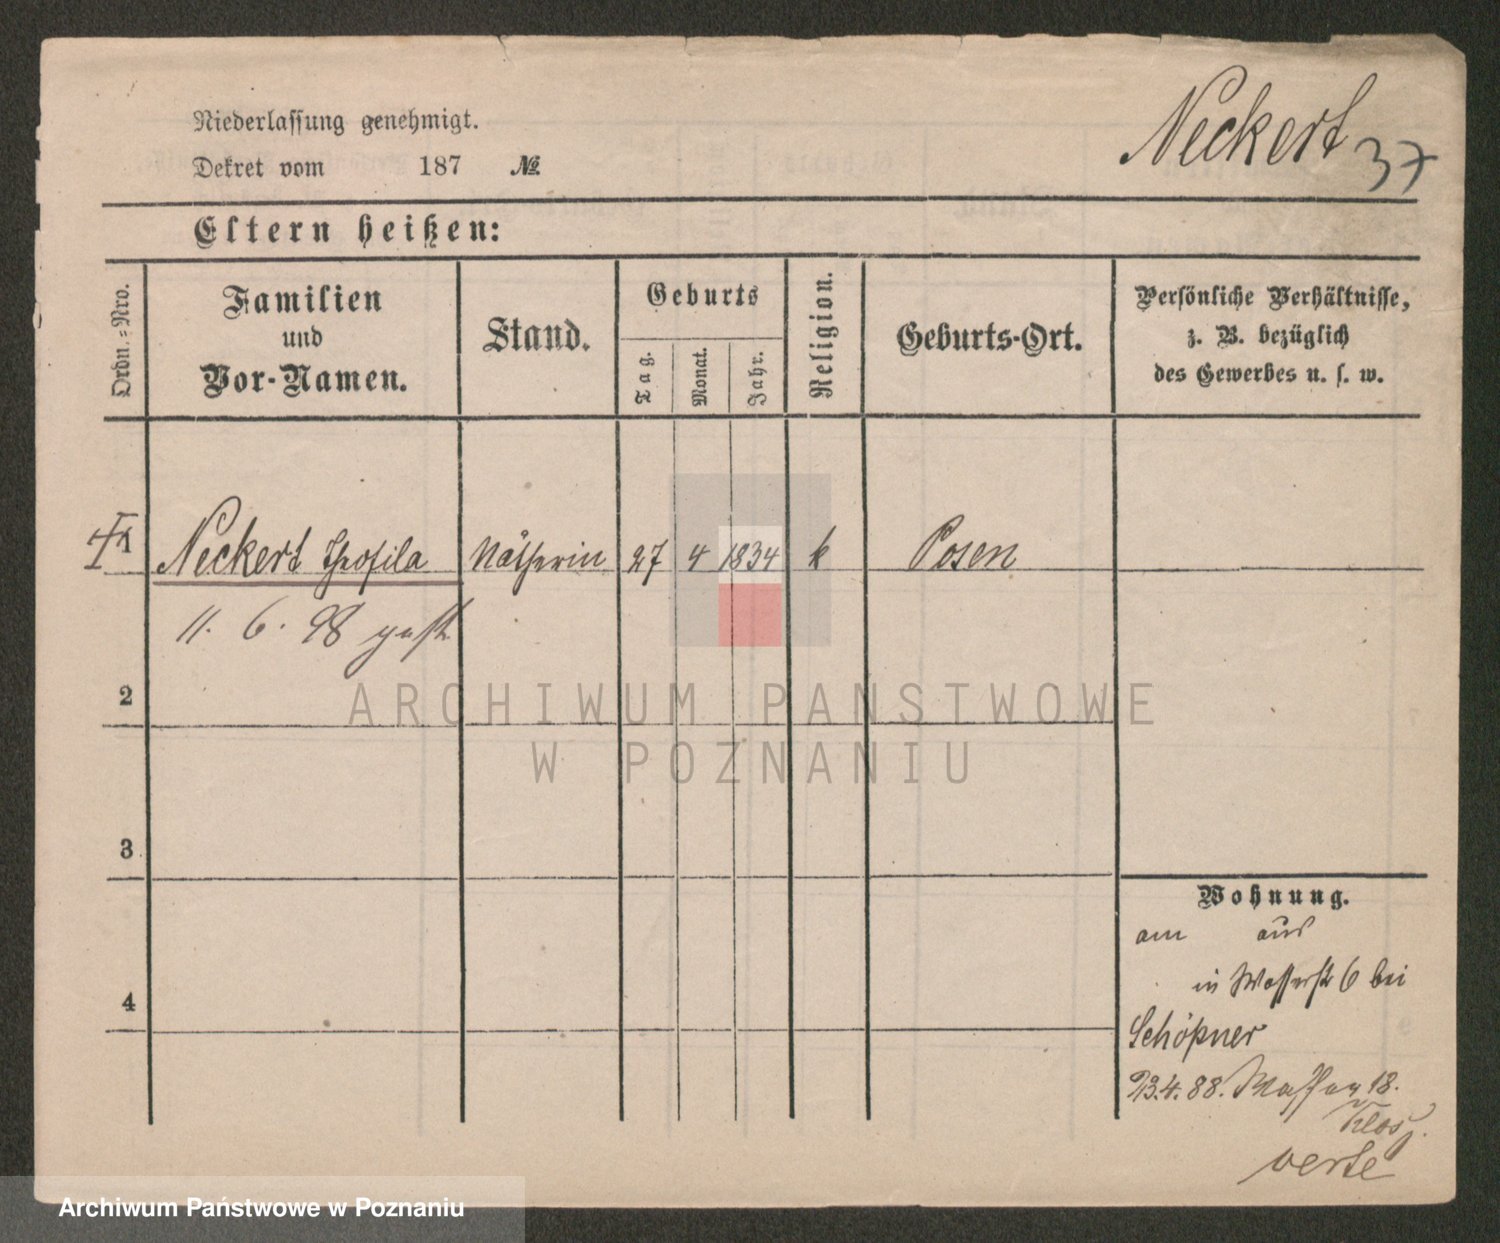 Neckert 37
Niederlassung genehmigt.
Dekret vom 187 №
Eltern heißen:
Ordn.-Nro.
Familien
und
Vor-Namen.
Stand.
Geburts
Tag.
Monat.
Jahr.
Religion.
Geburts-Ort.
Persönliche Verhältnisse,
z. B. bezüglich
des Gewerbes u. s. w.
1 Neckert Theofila Nätherin 27 4 1834 k Posen
11. 6. 98 gest
2
3
4
Wohnung.
am aus
in Wasserstr 6 bei
Schöpner
23.4.88. 18.
verte
ARCHIWUM PAŃSTWOWE
W POZNANIU
Archiwum Państwowe w Poznaniu